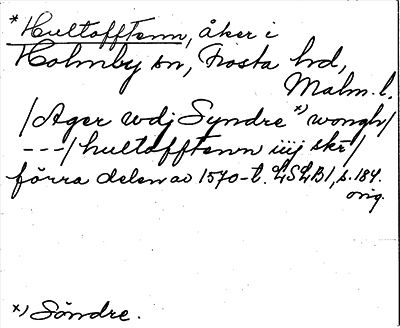 * Hultofftenn, åker i
Holmby sn, Frosta hd,
Malm. l.
/Ager wdj Syndre *) wongh/
---/hultofftenn iiij skr/
förra delen av 1570-t. LSLB1, s. 184.
orig.
*) Söndre.